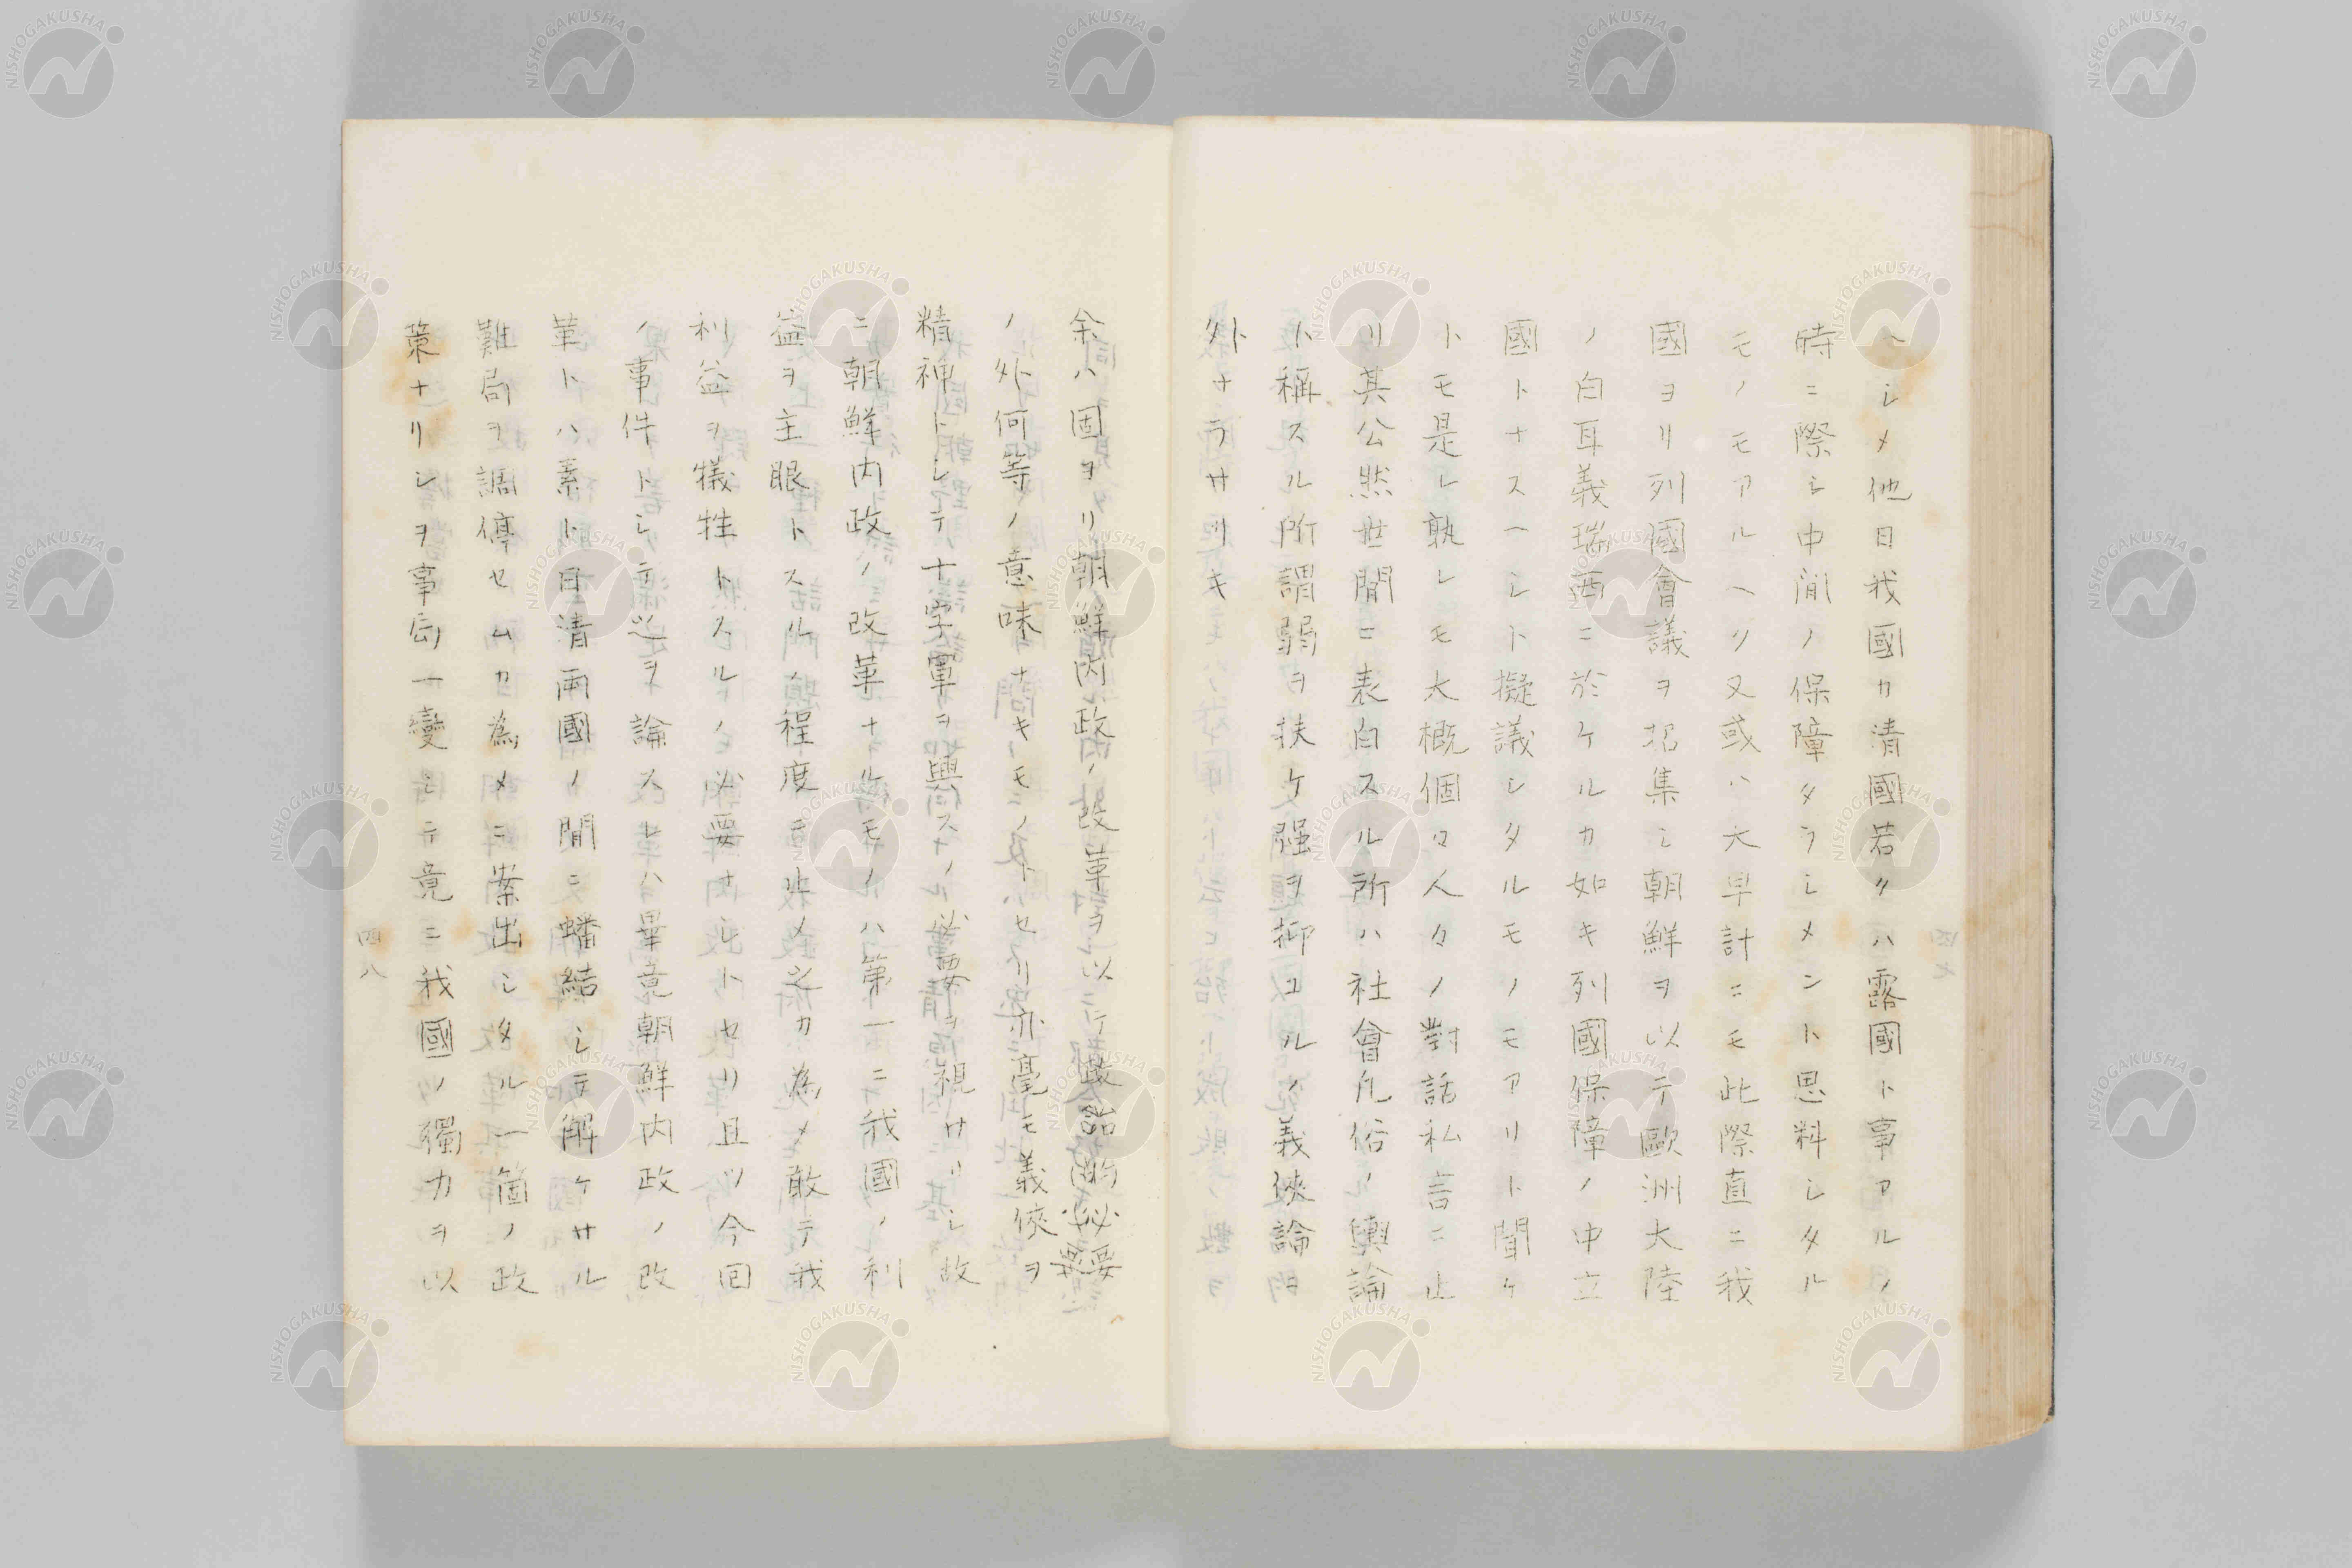 ヘシメ他日我國カ清國若クハ露國ト事アルノ
時ニ際シ中間ノ保障タラシメント思料シタル
モノモアルヘク又或ハ大早計ニモ此際直ニ我
國ヨリ列國會議ヲ招集シ朝鮮ヲ以テ歐洲大陸
ノ白耳義瑞西ニ於ケルカ如キ列國保障ノ中立
國トナスヘシト擬議シタルモノモアリト聞ケ
トモ是レ孰レモ大概個々人々ノ對話私言ニ止
リ其公然世間ニ表白スル所ハ社會凡俗ノ輿論
ト稱スル所謂弱ヲ扶ケ强ヲ抑ユルノ義俠論ヨ
外ナラサリキ
四七
余ハ固ヨリ朝鮮內政ノ改革ヲ以テ政治的必要
ノ外何等ノ意味ナキモノトセリ亦毫モ義俠ヲ
精神トシテ十字軍ヲ興スノ必要ヲ視サリシ故
ニ朝鮮内政ノ改革ナルモノハ第一ニ我國ノ利
益ヲ主眼トスルノ程度ニ止メ之カ為メ敢テ我
利益ヲ犠牲トスルノ必要ナシトセリ且ツ今回
ノ事件トシテ之ヲ論スレハ畢竟朝鮮内政ノ改
革トハ素ト日清兩國ノ間ニ蟠結シテ解ケサル
難局ヲ調停セムカ為メニ案出シタル一箇ノ政
策ナリシヲ事局一變シテ竟ニ我國ノ獨力ヲ以
四八
NISHOGAKUSHA